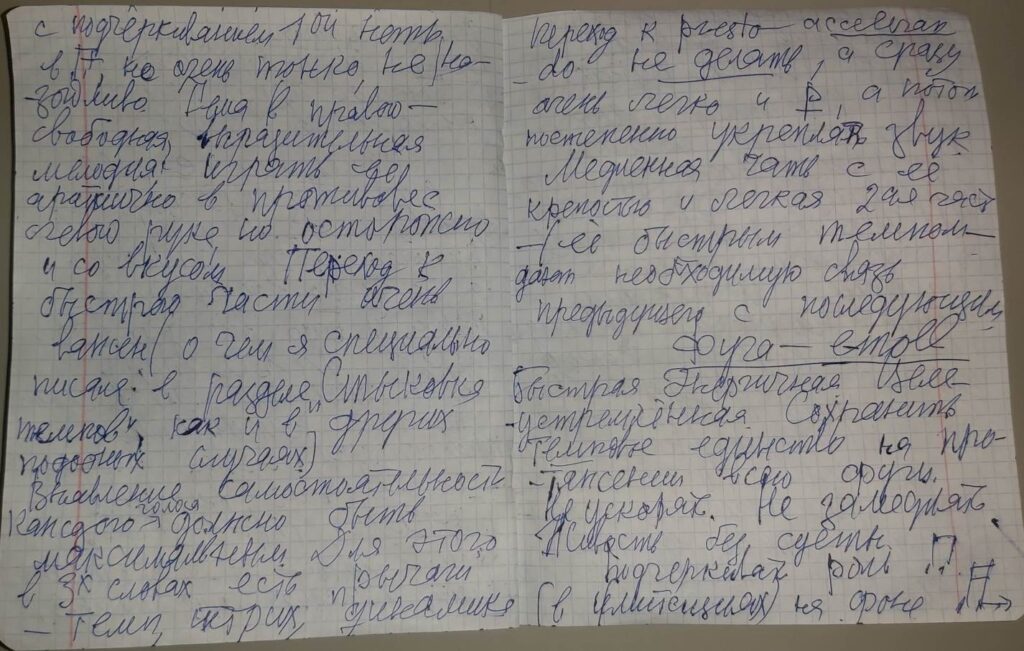 с подчёркиванием 1ой ноты
в П, но очень тонко, не на-
зойливо. Тема в правой —
свободная, выразительная
мелодия, играть
в противовес
левой руке но осторожно
и со вкусом. Переход к
быстрой части очень
важен (о чем я специально
писала в разделе "Стыковка
темпов", как и в других
подобных случаях)
Выявление самостоятельности
каждого голоса должно быть
максимальным Для этого
в 3х словах есть рычаги
— Темп, штрих, динамика
Переход к presto — accelеran
do не делать, а сразу
очень легко и p, а потом
постепенно укреплять звук
Медленная часть с её
крепостью и легкая 2ая часть
с её быстрым темпом —
дают необходимую связь
предыдущего с последующим
Фуга —
Быстрая Энергичная Целе-
-устремлённая Сохранить
темповое единство на про-
-тяжении всей фуги.
Не ускорять. Не замедлять
Живость без суеты
подчеркивать роль
(в имитациях) на фоне